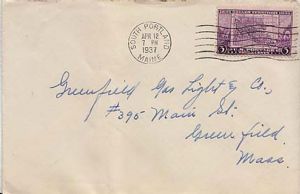 SOUTH PORTLAND
APR 12
7 PM
1937
MAINE
3
3
Greenfield Gas Light & Co.,
#395 Main St.
Greenfield,
Mass.